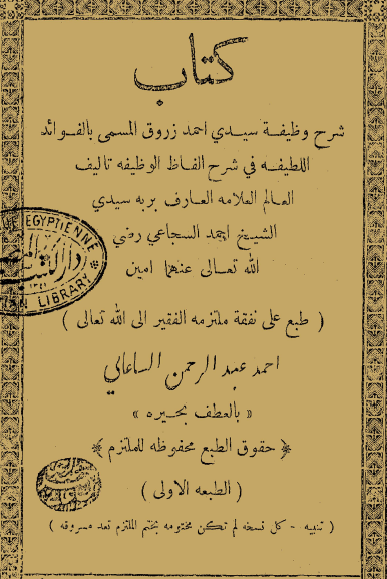 كتاب
شرح وظيفة سيدي احمد زروق المسمى بالفوائد
اللطيفه في شرح الفاظ الوظيفه تاليف
العالم العلامه العارف بربه سيدي
الشيخ احمد السجاعي رضي
الله تعالى عنهما امين
EGYPTIENNE
LIBRARY
( طبع على نفقة ملتزمه الفقير الى الله تعالى )
احمد عبد الرحمن الساعاتي
« بالعطف بحيره »
﴿ حقوق الطبع محفوظه للملتزم ﴾
( الطبعه الاولى )
( تنبيه - كل نسخه لم تكن مختومه بختم الملتزم تعد مسروقه )